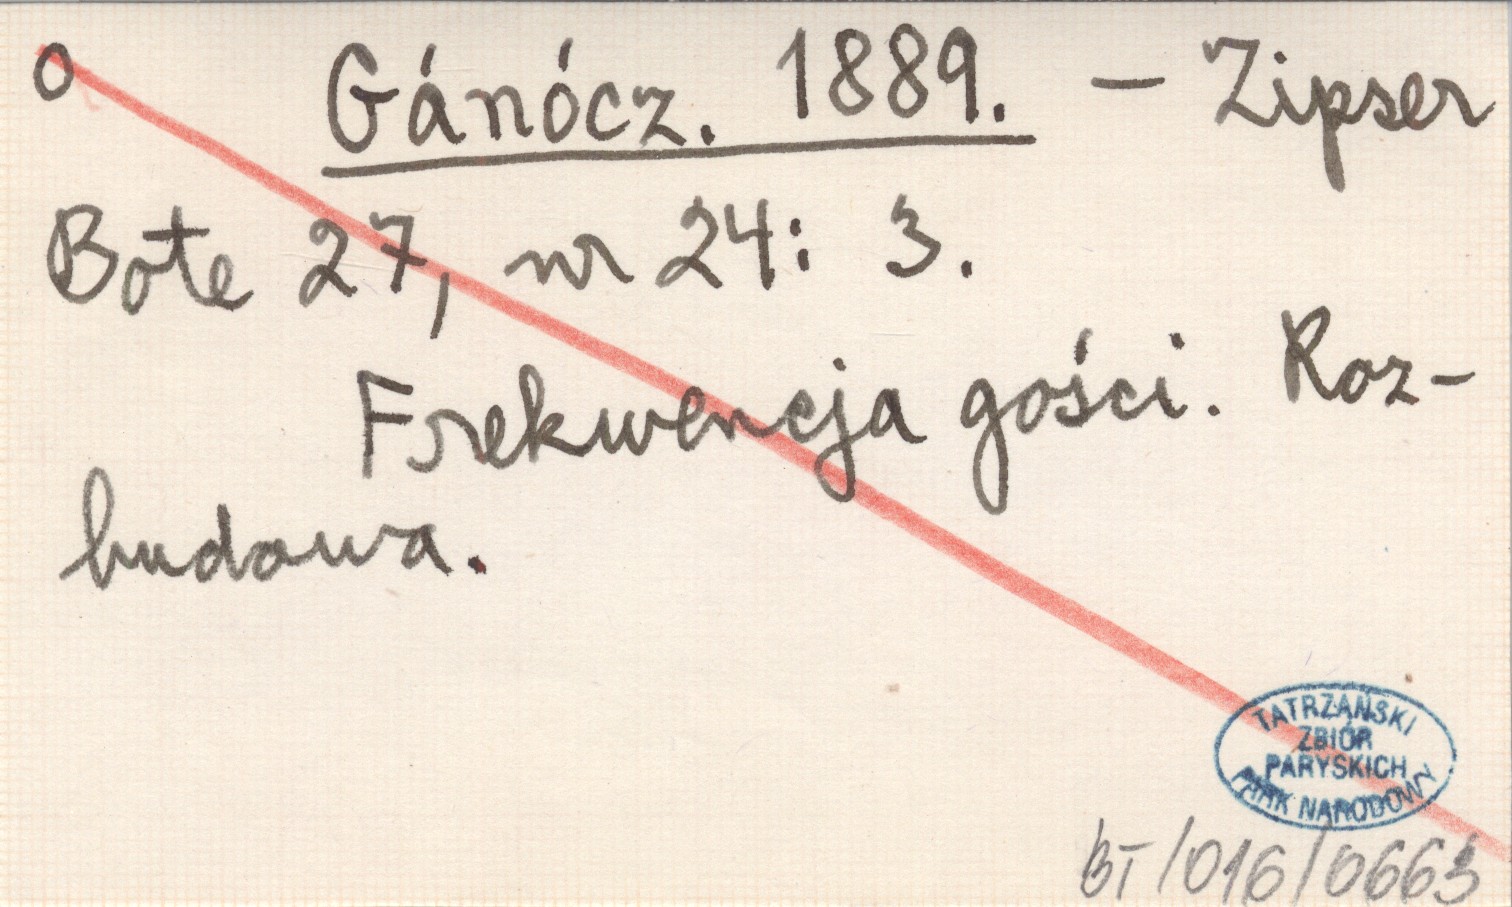 O Gánócz. 1889. – Zipser
Bote 27, nr 24: 3.
Frekwencja gości. Roz-
budowa.
TATRZAŃSKI
ZBIÓR
PARYSKICH
PARK NARODOWY
BT/016/0663